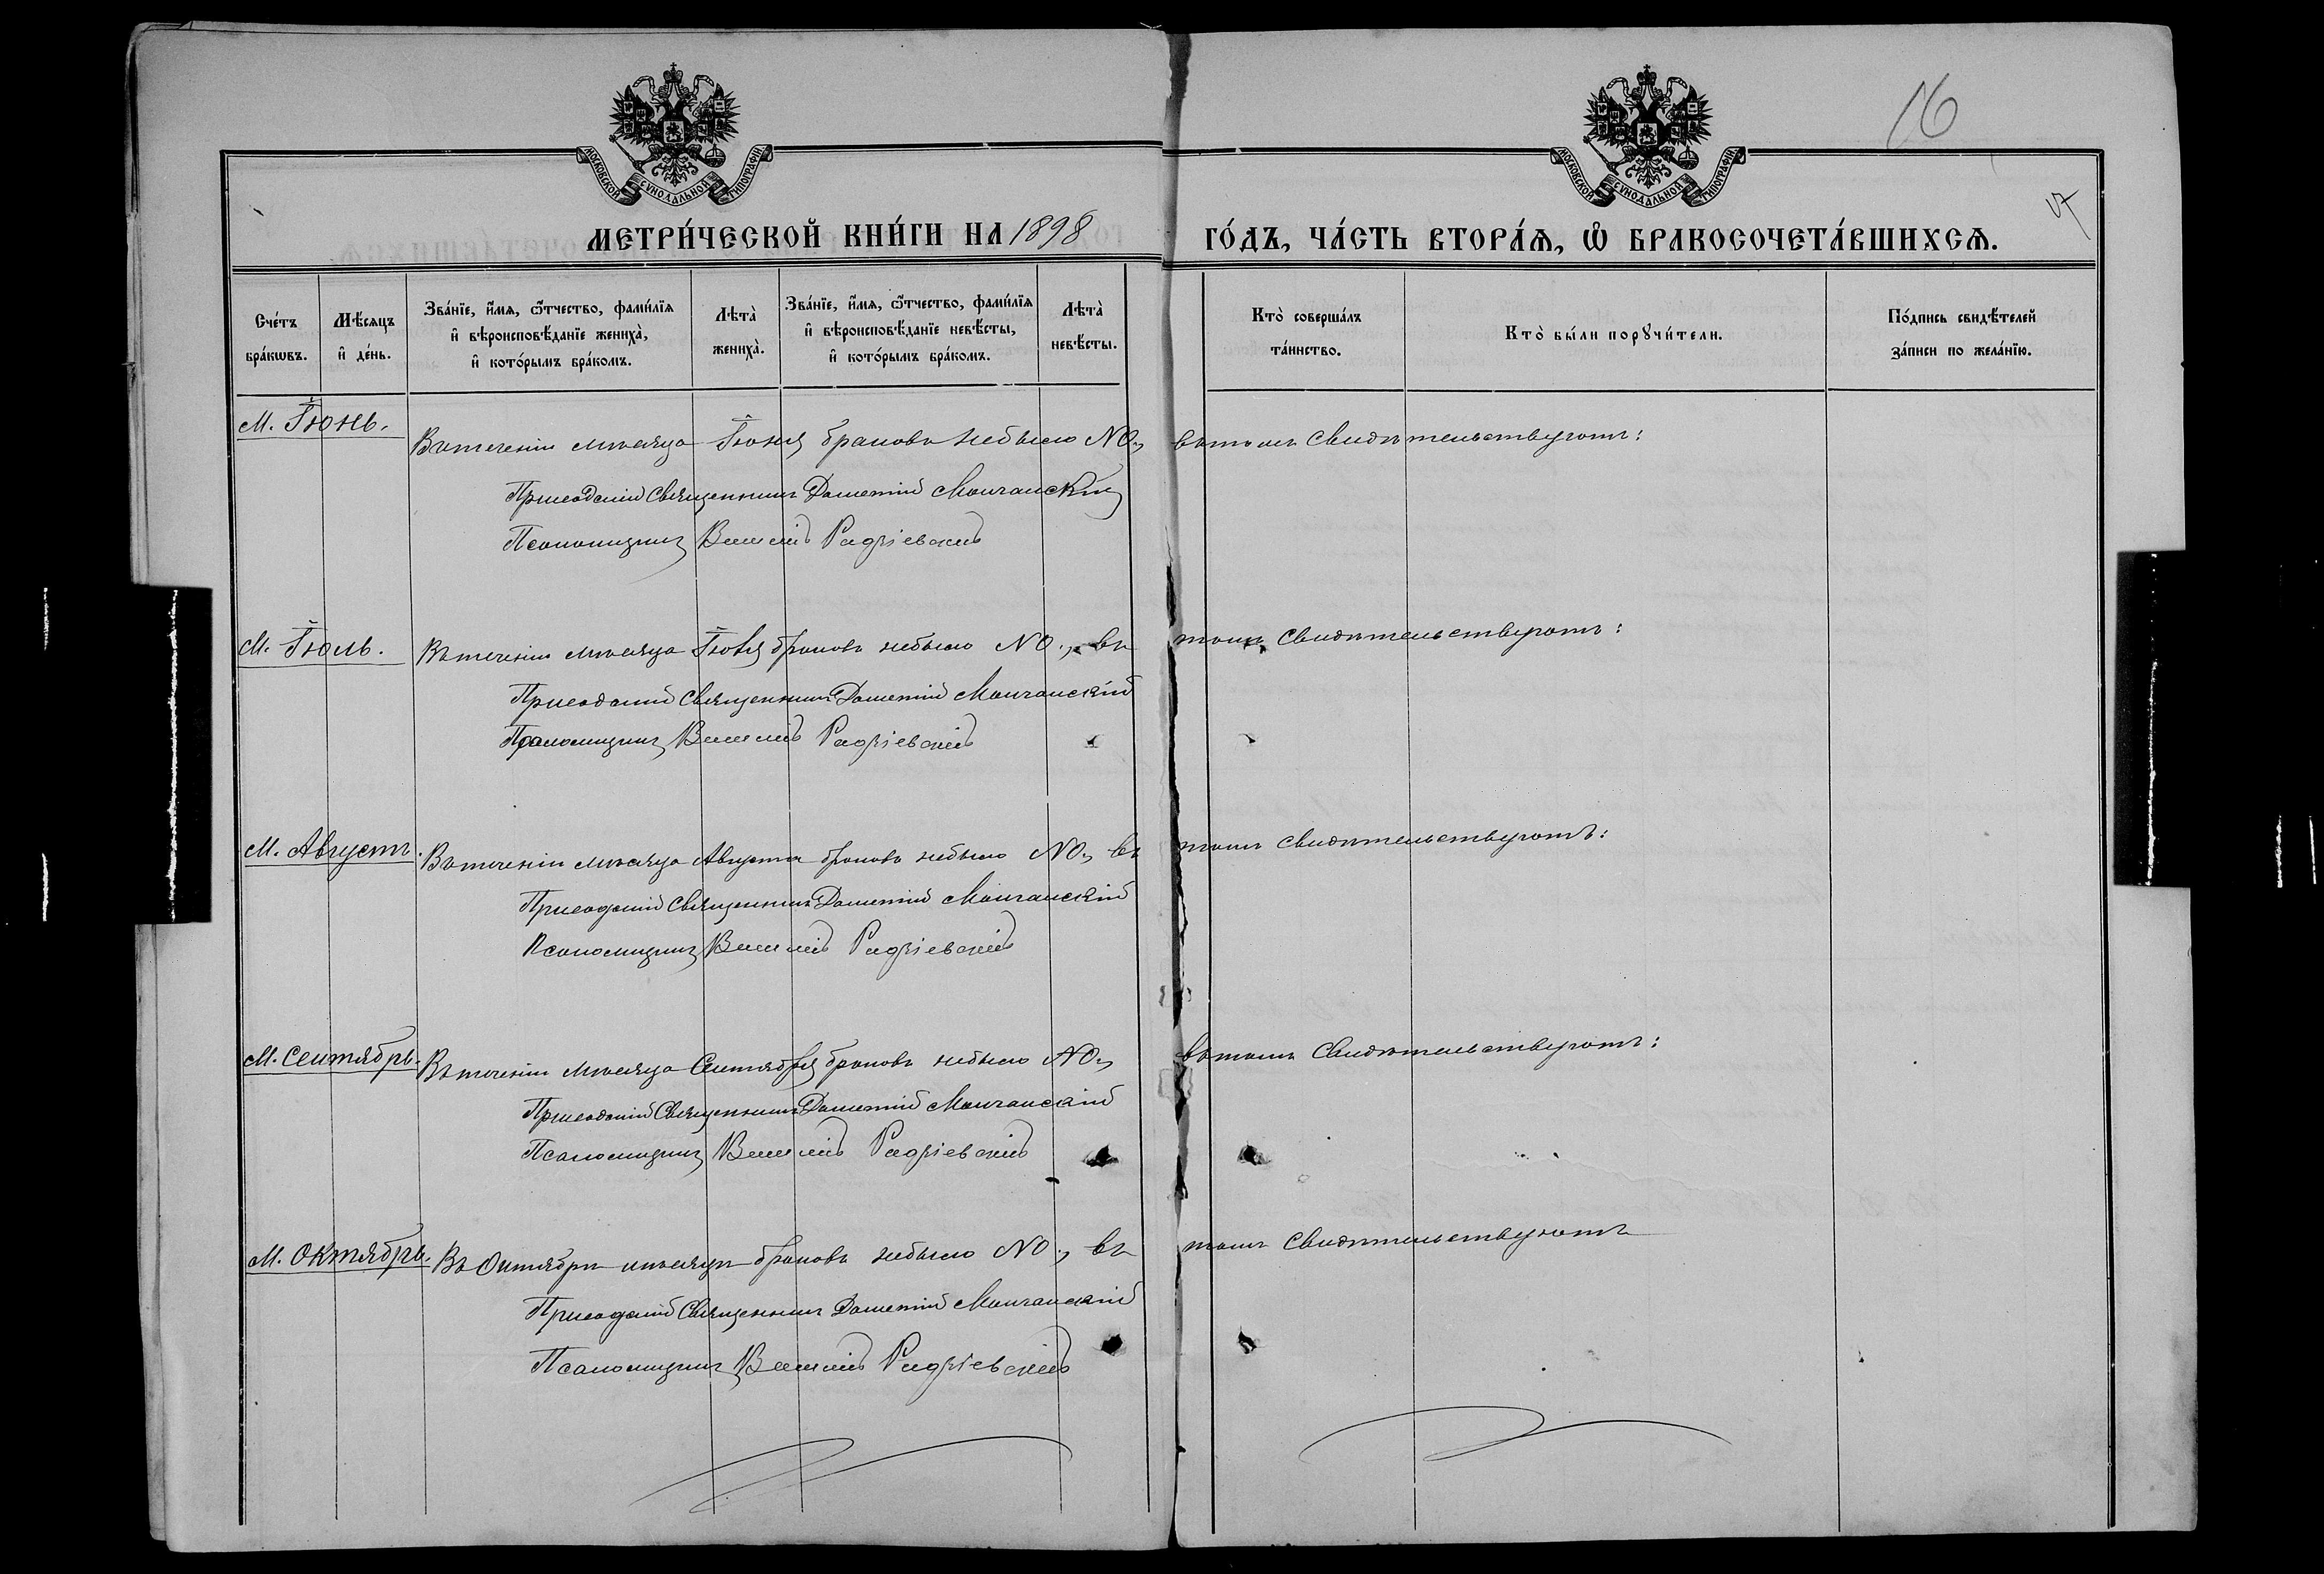 16
МОСКОВСКОЙ СѴНОДАЛЬНОЙ ТИПОГРАФІИ
МОСКОВСКОЙ СѴНОДАЛЬНОЙ ТИПОГРАФІИ
МЕТРИ́ЧЕСКОЙ КНИ́ГИ НА 1898 ГО́ДЪ, ЧА́СТЬ ВТОРА́Ѧ, Ѽ БРАКОСОЧЕТА́ВШИХСѦ.
Сче́тъ бра́кѡвъ.
Мѣ́сяцъ и҆ де́нь.
Зва́нїе, и҆́мѧ, ѻ҆́тчество, фами́лїѧ и҆ вѣроисповѣ́данїе жениха̀, и҆ кото́рымъ бра́комъ.
Лѣта̀ жениха̀.
Зва́нїе, и҆́мѧ, ѻ҆́тчество, фами́лїѧ и҆ вѣроисповѣ́данїе невѣ́сты, и҆ кото́рымъ бра́комъ.
Лѣта̀ невѣ́сты.
Кто̀ соверша́лъ та́инство.
Кто̀ бы́ли порꙋчи́тели.
По́дпись свидѣ́телей за́писи по жела́нїю.
М. Іюнь.
Въ теченіи мѣсяца Іюня браковъ небыло NO., въ томъ свидѣтельствуютъ:
Приходскій Священникъ Дометій Мончанскій
Псаломщикъ Василій Радзіевскій
М. Іюль.
Въ теченіи мѣсяца Іюля браковъ небыло NO., въ томъ свидѣтельствуютъ:
Приходскій Священникъ Дометій Мончанскій
Псаломщикъ Василій Радзіевскій
М. Августъ.
Въ теченіи мѣсяца Августа браковъ небыло NO., въ томъ свидѣтельствуютъ:
Приходскій Священникъ Дометій Мончанскій
Псаломщикъ Василій Радзіевскій
М. Сентябрь.
Въ теченіи мѣсяца Сентября браковъ небыло NO., въ томъ свидѣтельствуютъ:
Приходскій Священникъ Дометій Мончанскій
Псаломщикъ Василій Радзіевскій
М. Октябрь.
Въ Октябрѣ мѣсяцѣ браковъ небыло NO., въ томъ свидѣтельствуютъ
Приходскій Священникъ Дометій Мончанскій
Псаломщикъ Василій Радзіевскій